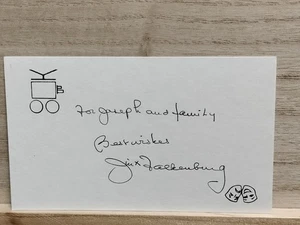 For Joseph and family
Best wishes
Jinx Falkenburg